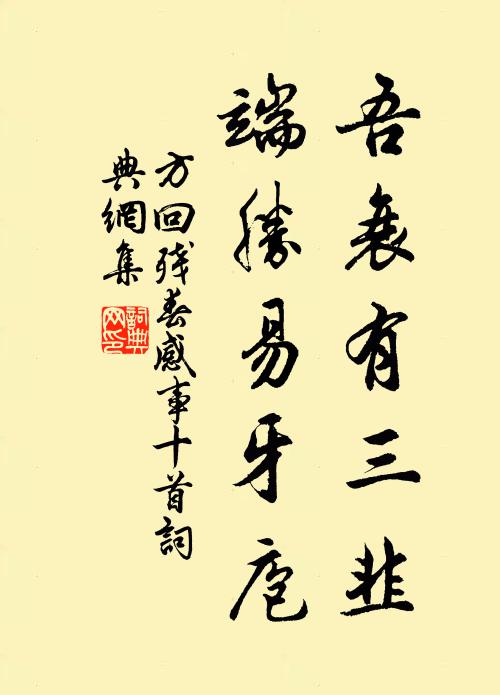 吾衰有三韭
端勝易牙庖
方回殘春感事十首詞
典網集
詞典网印